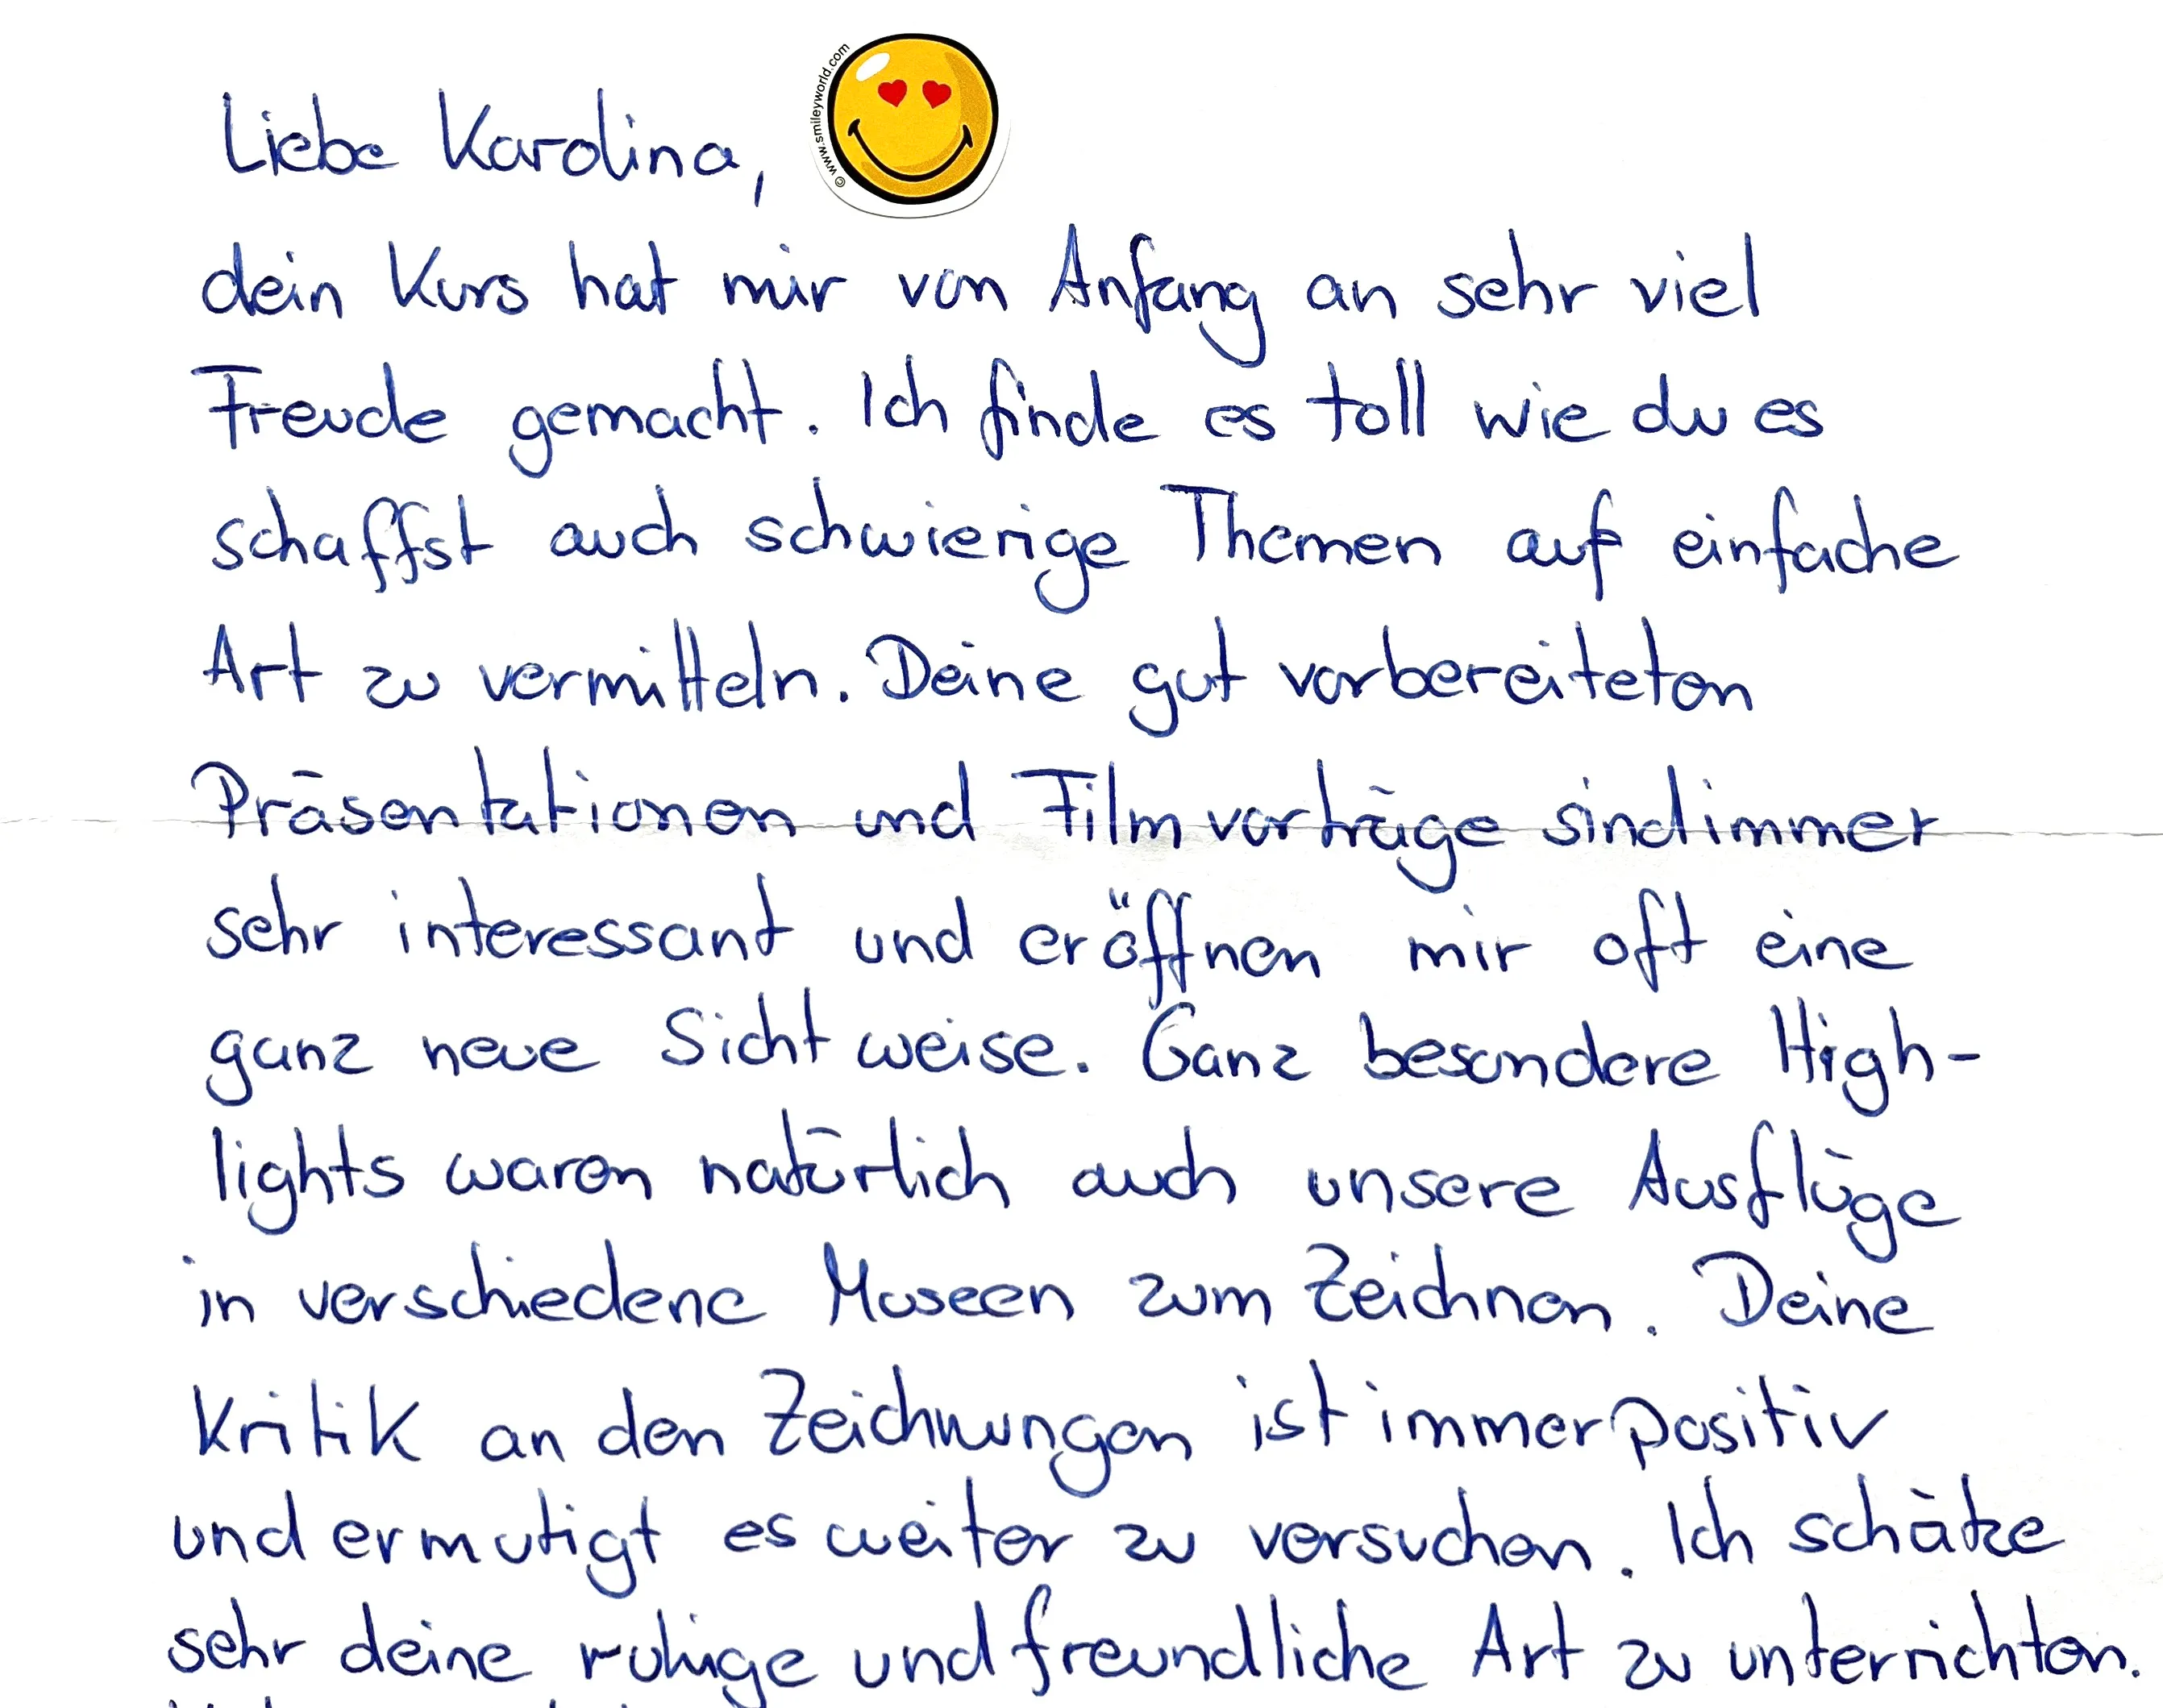 © www.smileyworld.com
Liebe Karolina,
dein Kurs hat mir von Anfang an sehr viel
Freude gemacht. Ich finde es toll wie du es
schaffst auch schwierige Themen auf einfache
Art zu vermitteln. Deine gut vorbereiteten
Präsentationen und Filmvorträge sind immer
sehr interessant und eröffnen mir oft eine
ganz neue Sichtweise. Ganz besondere High-
lights waren natürlich auch unsere Ausflüge
in verschiedene Museen zum Zeichnen. Deine
Kritik an den Zeichnungen ist immer positiv
und ermutigt es weiter zu versuchen. Ich schätze
sehr deine ruhige und freundliche Art zu unterrichten.